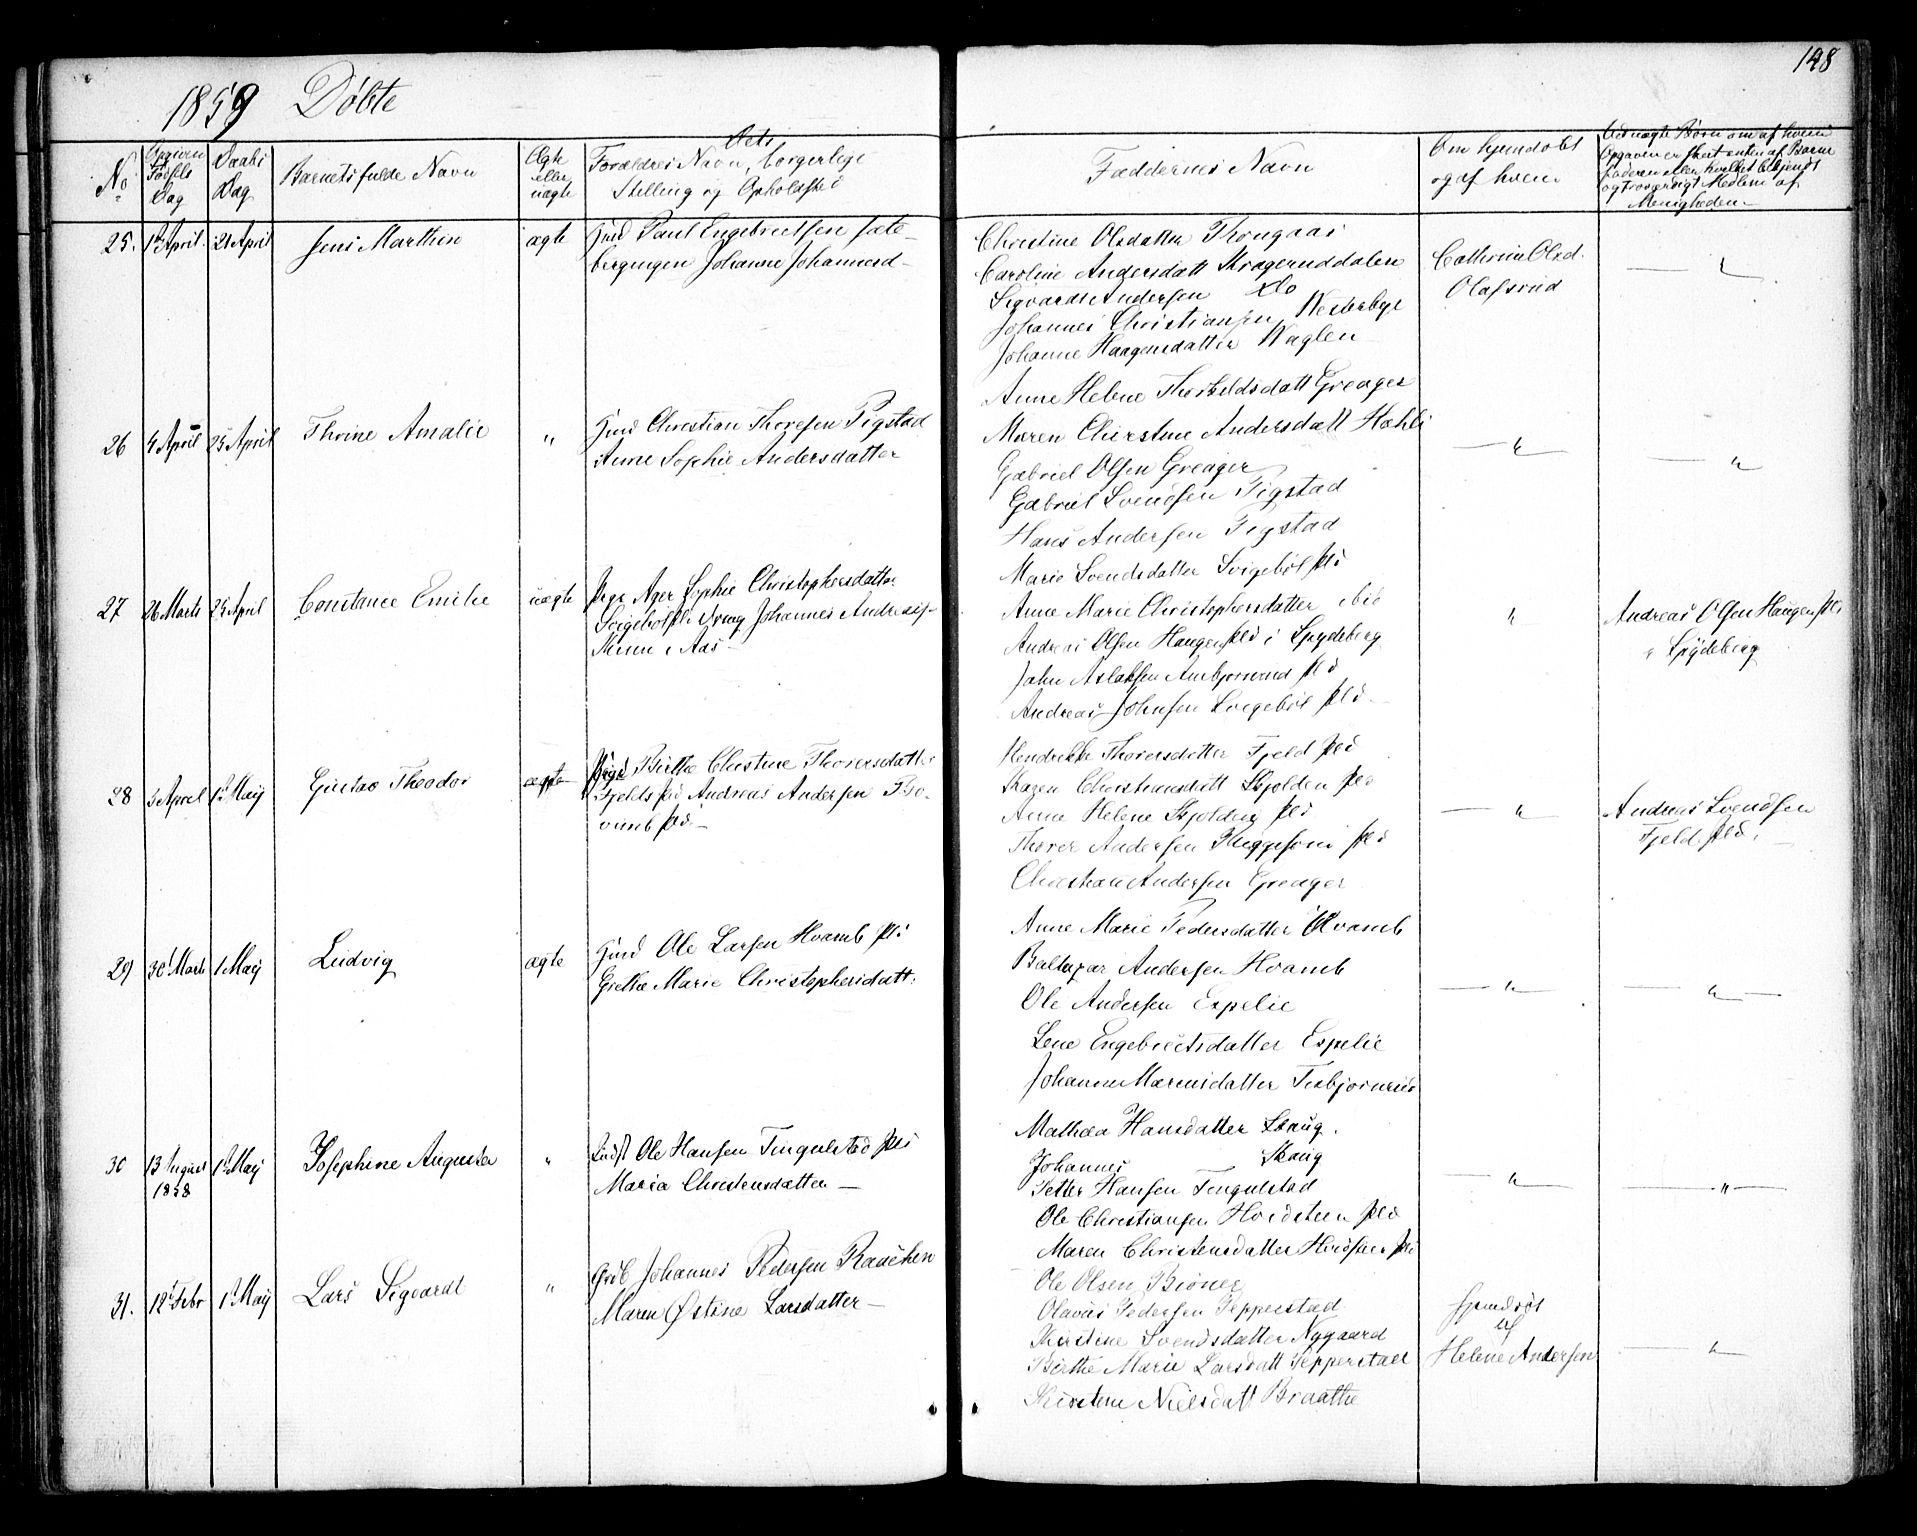 148
1859 Døbte
No
Opgiven Fødsels Dag
Daabs Dag
Barnets fulde Navn
Ægte eller uægte
Forældres Navn, Dets borgerlige
Stilling og Opholdsted
Faddernes Navn
Om hjemdøbt
og af hvem
Ved uægte Børn om af hvem
Opgaven er skeet enten af Barne
faderen eller hvilket bekjendt
og troværdigt Medlem af
Menigheden
25. 1 April 21 April Jens Marthin ægte Gmd Paul Engebretsen
Johanne Johannesd
Christine Olsdatter
Caroline Andersdatt Krageruddalen
Sigvardt Andersen do
Johannes Christiansen Westerbye
Johanne Haagensdatter Naglen
Cathrine Olsd.
Olafsrud
26 4 April 25 April Thrine Amalie " Gmd Christian Thoresen Tigstad
Anne Sophie Andersdatter
Anne Helene Thorkildsdatt Greager
Maren Chirstine Andersdatt Hæhli
Gabriel Olsen Greager
Gabriel Svendsen Tigstad
Hans Andersen Tigstad
27 26 Marts 25 April Constance Emilie uægte Pige Ager Sophie Christophersdatter
Svigebøl Pld Johannes Andreas
i Aas
Marie Svendsdatter Svigebøl Pld
Anne Marie Christophersdatter ibid
Andreas Olsen Haugen Pld i Spydeberg
John Aslaksen Pld
Andreas Johnsen Svigebøl Pld
Andreas Olsen Haugen Pld
i Spydeberg
28 3 April 1 Maij Gustav Theodor ægte Pige Birthe Christine Thorersdatter
Fjeld Pld Andreas Andersen
Pld
Hendrikke Thorersdatter Fjeld Pld
Karen Christiansdatt Skjolden Pld
Anne Helene Skjolden Pld
Thorer Andersen Pld
Christian Andersen Greager
Andreas Svendsen
Fjeld Pld.
29 30 Marts 1 Maij Ludvig ægte Gmd Ole Larsen Hvamb Pld
Grethe Marie Christophersdatt:
Anne Marie Pedersdatter Hvamb
Baltazar Andersen Hvamb
Ole Andersen Espelie
Lene Engebretsdatter Espelie
Johanne Marensdatter Tesbjørnrud
30 13 August 1858 1 Maij Josephine Augusta " Indst Ole Hansen Tingulstad Pld
Maria Christensdatter
Mathea Hansdatter Skaug.
Johannes Skaug
Petter Hansen Tingulstad
Ole Christiansen Hvidsteen Pld
Maren Christensdatter Hvidsteen Pld
31. 12 Febr 1 Maij Lars Sigvardt " Johannes Pedersen
Maren Østine Larsdatter
Ole Olsen
Olavus Pedersen Pepperstad
Kirstine Svendsdatter Nygaard
Birthe Marie Larsdatt Pepperstad
Kirstine Nielsdatt Braathe
hjemdøbt
af
Helene Andersen